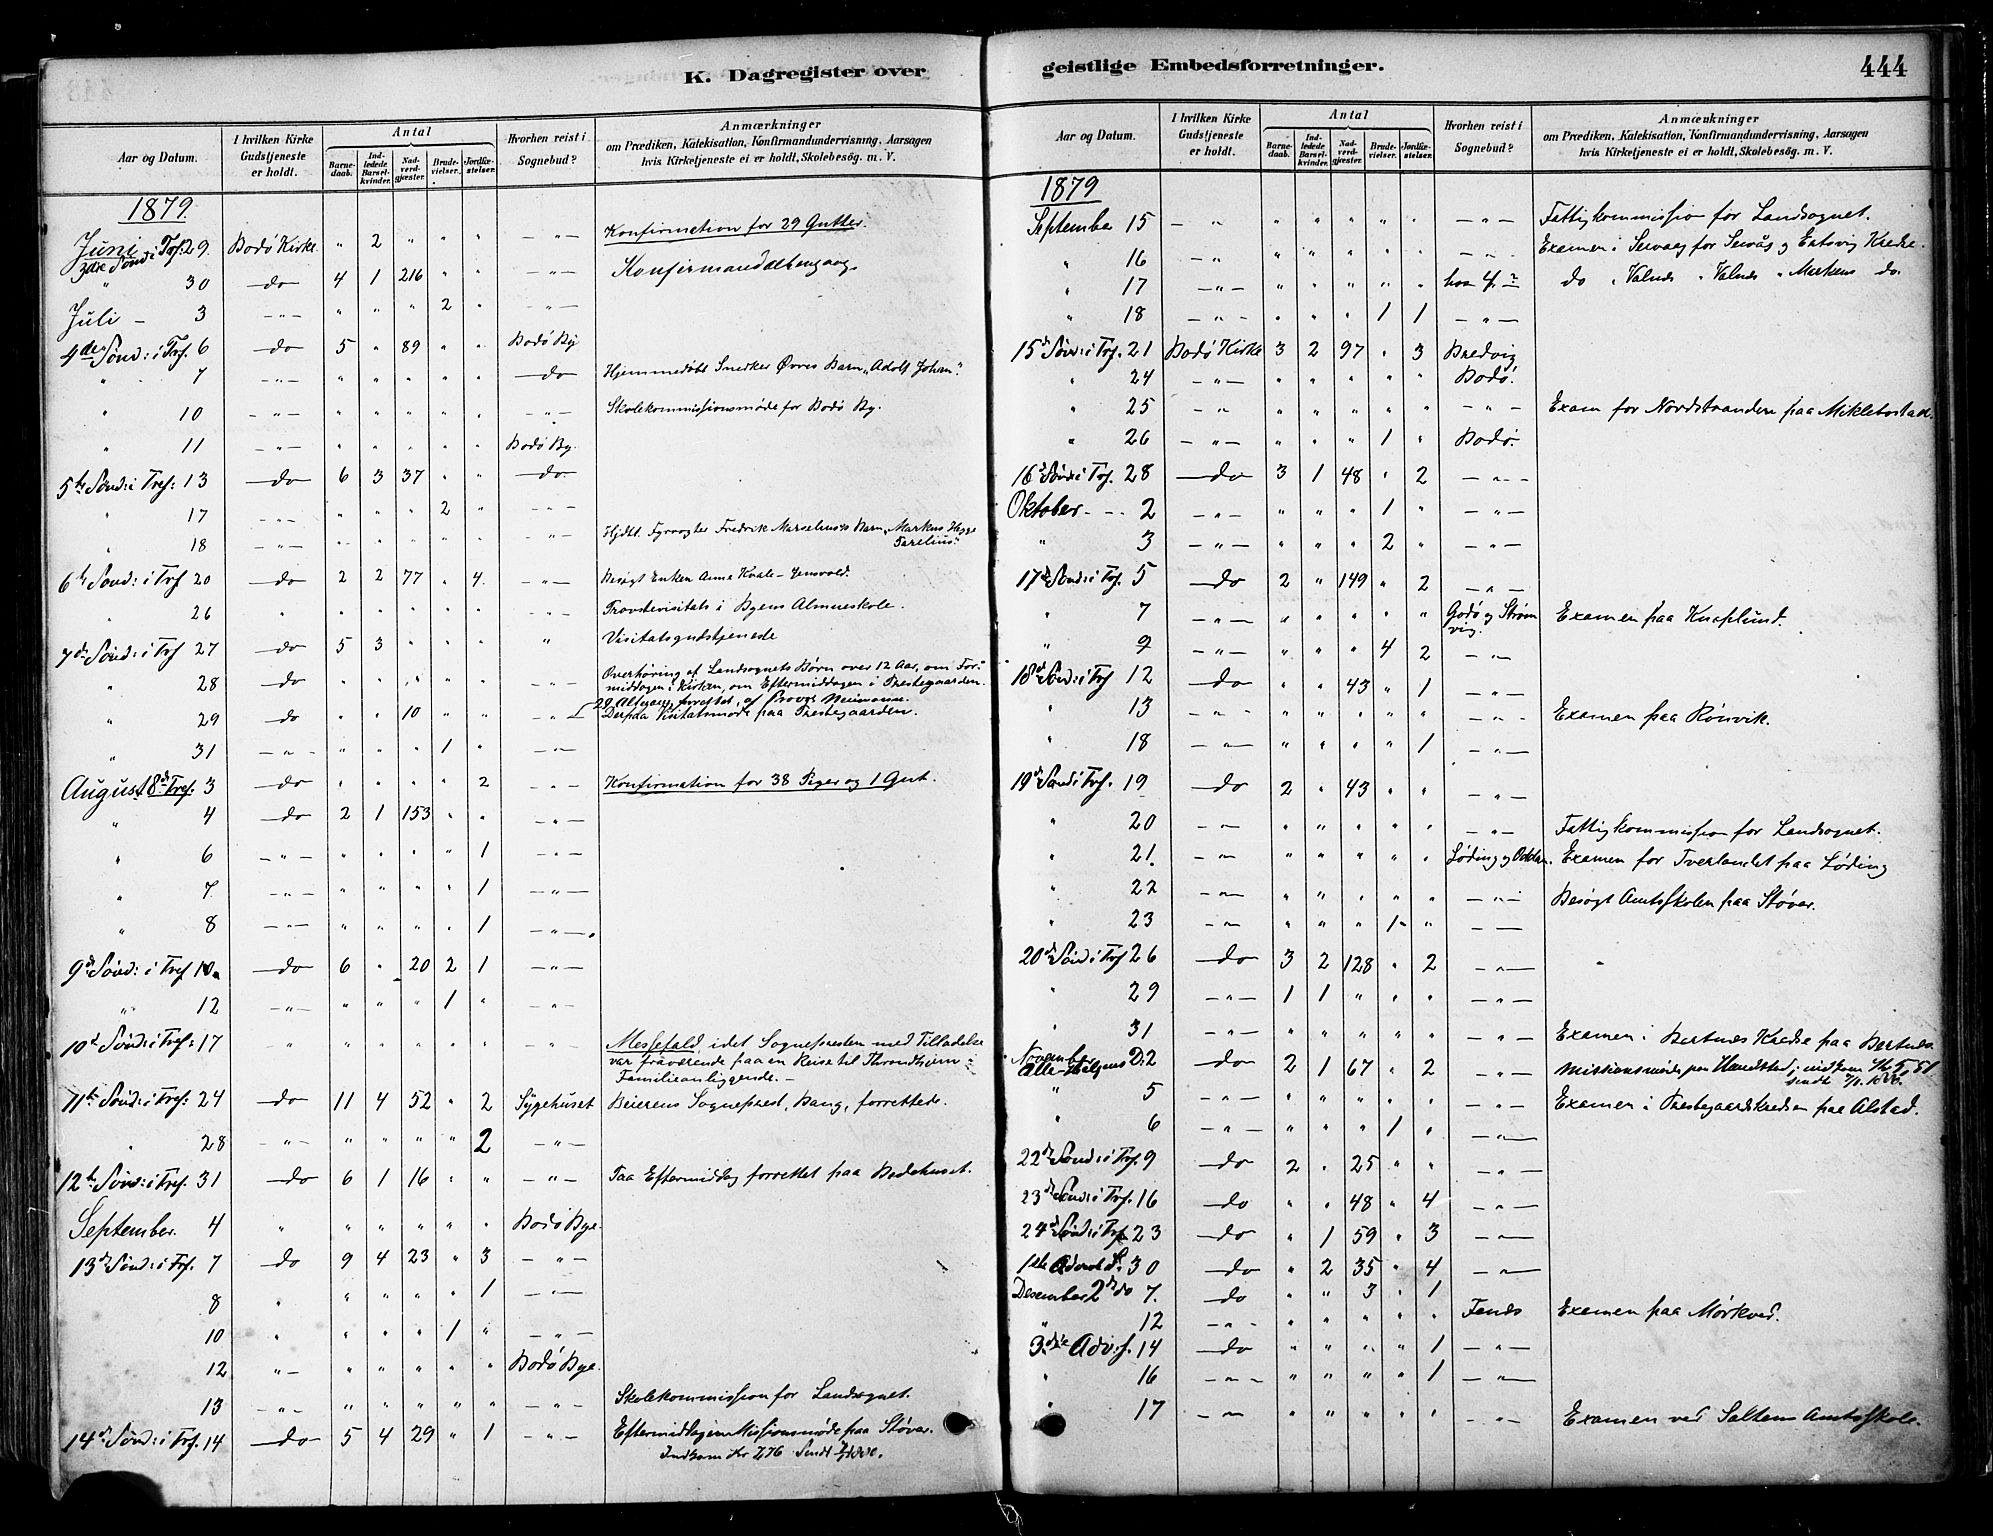 K. Dagregister over geistlige Embedsforretninger. 444
Aar og Datum. | I hvilken Kirke Gudstjeneste er holdt. | Antal | Barnedaab. | Indledede Barselkvinder. | Nadverdgjæster. | Brudevielser. | Jordfæstelser. | Hvorhen reist i Sognebud? | Anmærkninger om Prædiken, Katekisation, Konfirmandundervisning, Aarsagen hvis Kirketjeneste ei er holdt, Skolebesøg. m. V.
1879.
Juni 3die Sønd: i Tref. 29. Bodö Kirke " 2 " " " —"— Konfirmation for 29 Gutter.
" 30 do 4 1 216 " " —"—
Juli – 3 —"— " " " 2 " —"—
4de Sönd: i Tref. 6 do 5 " 89 " " Bodö By
" 7 —"— " " " " " do Hjemmedöbt Snedker Övres Barn „Adolf Johan".
" 10 —"— " " " " " —"— Skolekommissionsmöde for Bodö By.
" 11 —"— " " " " " Bodö By
5te Sönd: i Tref: 13 do 6 3 37 " " do.
" 17 —"— " " " 2 " —"—
" 18 —"— " " " " " —"— Hjdbt. Fyrvogter Fredrik Marselius's Barn, „Markus Hegge
6te Sönd: i Tref 20 do 2 2 77 " 4. —"— Besögt Enken Anne Kvale – Jensvold.
" 26 " " " " " " —"— Provstevisitats i Byens Almueskole.
7de Sönd: i Tref 27 do 5 3 " " " " Visitatsgudstjeneste
" 28 do " " " " " —"— Overhöring af Landsognets Börn over 12 Aar, om For-
middagen i Kirken, om Eftermiddagen i Prestegaarden.
" 29 do " " 10 " " —"— Visitatsmöde paa Prestegaarden.
" 31 —"— " " " 1 " —"—
August 8de Tref: 3 do " " " " 2 —"— Konfirmation for 38 Piger og 1 Gut.
" 4 do 2 1 153 " " —"—
" 6 —"— " " " " 1 —"—
" 7 —"— " " " " 1 —"—
" 8 —"— " " " " 1 —"—
9de Sönd: i Tref 10 do 6 " 20 2 1 —"—
" 12 —"— " " " 1 " —"—
10de Sönd: i Tref: 17 " " " " " " " Messefald idet Sognepresten med Tilladelse
var fraværende paa en Reise til Throndhjem i
Familieanliggende. –
11te Sönd: i Tref: 24 do 11 4 52 " 2 Sygehuset Beierens Sogneprest, Bang, forrettede.
" 28 —"— " " " " 2 —"—
12te Sönd: i Tref. 31 do 6 1 16 " " —"— Paa Eftermiddag forrettet paa Bedehuset.
September. 4 " " " " " " Bodö Bye.
13de Sönd: i Tref. 7 do 9 4 23 " 3 —"—
8 " " " " " 1 —"—
10 " " " " 1 " —"—
12 "— " " " " " Bodö Bye.
13 —"— " " " " " —"— Skolekommission for Landsognet.
14de Sönd: i Tref. 14 do 5 4 29 " 1 —"— Eftermiddagen Missionsmöde paa Stövar.
Indkom Kr 7,76
Aar og Datum. | I hvilken Kirke Gudstjeneste er holdt. | Antal | Barnedaab. | Indledede Barselkvinder. | Nadverdgjæster. | Brudevielser. | Jordfæstelser. | Hvorhen reist i Sognebud? | Anmærkninger om Prædiken, Katekisation, Konfirmandundervisning, Aarsagen hvis Kirketjeneste ei er holdt, Skolebesøg. m. V.
1879
September 15 — " " " " " " —"— Fattigkommission for Landsognet.
" 16 —"— " " " " " —"—
" 17 —"— " " " " "
" 18 —"— " " " 1 1 —"—
15de Sönd: i Tref. 21 Bodö Kirke 3 2 97 " 3 Bredvig
" 24 —"— " " " " " Bodö.
" 25 —"— " " " " " —"— Exam for Nordstranden paa Miklebostad.
" 26 —"— " " " 1 " Bodö.
16de Sönd: i Tref. 28 do 3 1 48 " 2 —"—
Oktober – – 2 —"— " " " 1 " —"—
" 3 —"— " " " 2 " —"—
17de Sönd: i Tref. 5 do 2 " 149 " 2 —"—
" 7 —"— " " " " " Godö og Ström-
vig. Examen paa Knaplund.
" 9 —"— " " " 4 2 —"—
18de Sönd: i Tref 12 do " " 43 " 1 —"—
" 13 —"— " " " " " —"— Examen paa Rönvik.
" 18 —"— " " " " 1 —"—
19de Sönd i Tref. 19 do 2 " 43 " " —"—
" 20 —"— " " " " " —"— Fattigkommission for Landsognet.
" 21. —"— " " " " " Examen for Tverlandet paa Löding
" 22 —"— " " " " " —"— Besögt Amtsskolen paa Stövar.
" 23 —"— " " " 1 " —"—
20de Sönd i Tref 26 do 3 2 128 " 2 —"—
" 29 —"— 1 1 " " " —"—
" 31 —"— " " " " " —"— Examen i Bertnes Kreds paa Bertnes
November Alle-Helgens D. 2 do 2 1 67 " 2 —"—
" 5 —"— " " " " " —"— Examen i Prestegaardskredsen paa Alstad.
" 6 —"— " " " 1 " —"—
22de Sönd: i Tref. 9 do 2 " 25 " " —"—
23de Sönd: i Tref. 16 do " " 48 " 4 —"—
24de Sönd: i Tref 23 do " 1 59 " 3 —"—
1ste Advent S. 30 do " 2 35 " 4 —"—
Desember 2de do 7. do " " 3 " 1
" 12 —"— " " " " " Examen paa Mörkved.
3die Adv. S. 14 do " " " " 1 —"—
" 16 —"— " " " " 1 —"—
" 17 —"— " " " " " —"— Examen ved Saltens Amtsskole.